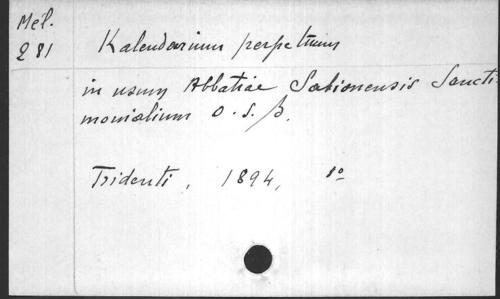 Mél.
281
Kalendarium perpetuum
in usum Abbatiae Sabionensis Sancti-
monialium O. S. B.
Tridenti, 1894, 8°